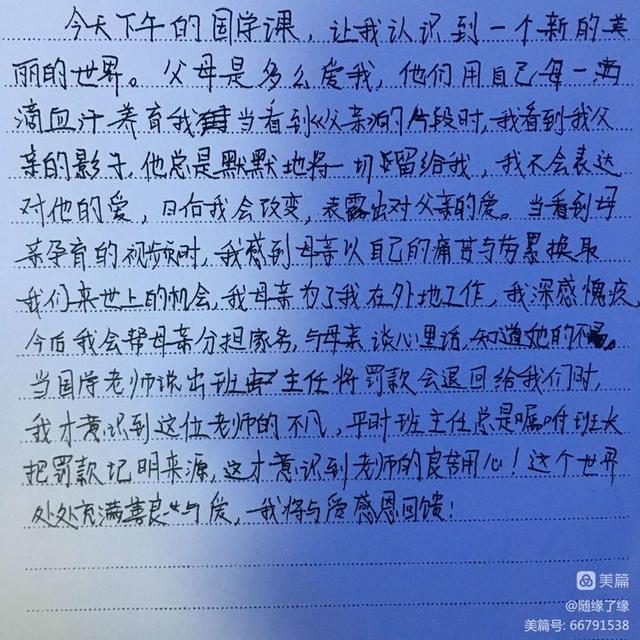 今天下午的国学课，让我认识到一个新的美
丽的世界。父母是多么爱我，他们用自己每一
滴血汗养育我 当看到《父亲》的片段时，我看到我父
亲的影子，他总是默默地将一切留给我，我不会表达
对他的爱，日后我会改变，表露出对父亲的爱。当看到母
亲孕育的视频时，我感到母亲以自己的痛苦与劳累换取
我们来世上的机会，我母亲为了我在外地工作，我深感愧疚，
今后我会帮母亲分担家务，与母亲谈心里话，知道她的不
当国学老师说出班 主任将罚款会退回给我们时，
我才意识到这位老师的不凡，平时班主任总是嘱咐班长
把罚款记明来源，这才意识到老师的良苦用心！这个世界
处处充满善良与爱，我将与爱感恩回馈！
美篇
@随缘了缘
美篇号: 66791538